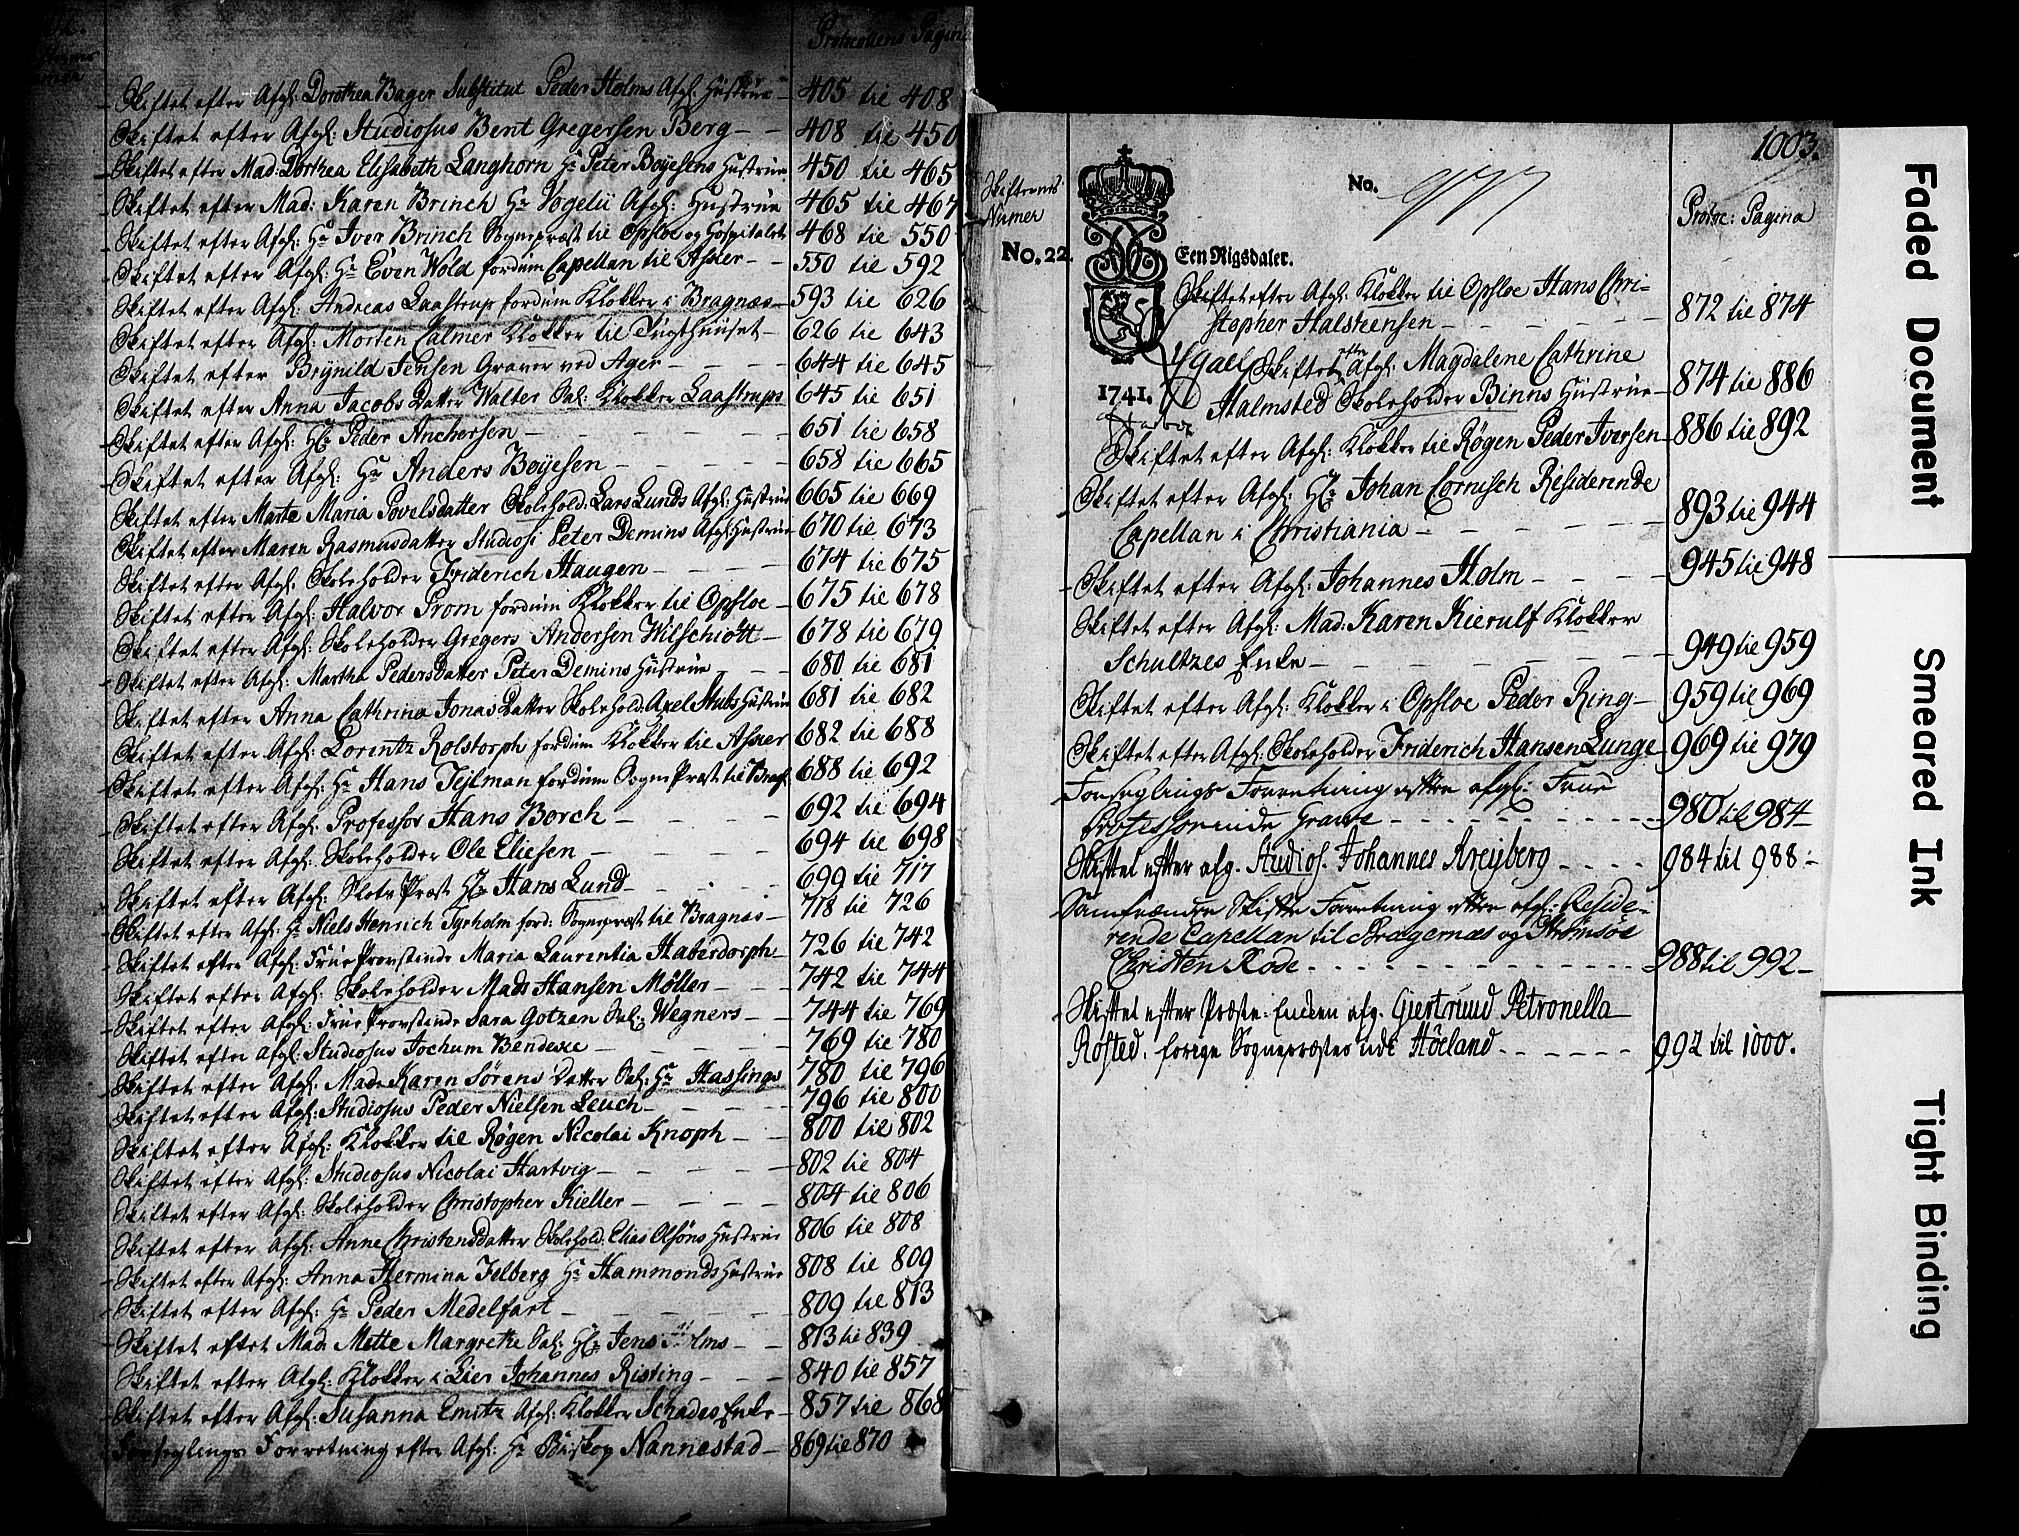 Protocollens Pagina
Skiftet efter Afgl: Dorothea Bager Substitut Peder Holms Afgl: Hustrue - 405 til 408
Skiftet efter Afgl: Studiosus Bent Gregersen Berg - - 408 til 450
Skiftet efter Mad: Dorthea Elisabeth Langhorn Hr Peter Boyesens Hustrue 450 til 465
Skiftet efter Mad: Karen Brinch Hr Vogelii Afgl: Hustrue 465 til 467
Skiftet efter Afgl: Hr Iver Brinch Sognepræst til Opsloe og Hospitalet 468 til 550
Skiftet efter Afgl: Hr Even Wold fordum Capellan til Asker - - 550 til 592
Skiftet efter Afgl: Andreas Laastrup fordum Klokker i Bragnæs - 593 til 626
Skiftet efter Afgl: Morten Calmer Klokker til Tugthuuset - 626 til 643
Skiftet efter Brynild Jensen Graver ved Ager - - - - 644 til 645
Skiftet efter Anna Jacobs Datter Walter Sal: Klokker Laastrups 645 til 651
Skiftet efter Afgl: Hr Peder Anchersen - - - - - 651 til 658
Skiftet efter Afgl: Hr Anders Boyesen - - - - 658 til 665
Skiftet efter Marte Maria Povelsdatter Skolehold: Lars Lunds Afgl: Hustrue 665 til 669
Skiftet efter Maren Rasmusdatter Studiosi Peter Demins Afgl: Hustrue 670 til 673
Skiftet efter Afgl: Skoleholder Friderich Haugen - - - - 674 til 675
Skiftet efter Afgl: Halvor Prom fordum Klokker til Opsloe - 675 til 678
Skiftet efter Afgl: Skoleholder Gregers Andersen Wilschiött - 678 til 679
Skiftet efter Afgl: Martha Pedersdatter Peter Demins Hustrue - - - 680 til 681
Skiftet efter Anna Cathrina Jonas Datter Skolehold: Axel Stubs Hustrue 681 til 682
Skiftet efter Afgl: Lorentz Rolstorph fordum Klokker til Asker 682 til 688
Skiftet efter Afgl: Hr Hans Tejlman fordum Sogne Præst til 688 til 692
Skiftet efter Afgl: Professor Hans Borch - - - - 692 til 694
Skiftet efter Afgl: Skoleholder Ole Eliesen - - - - 694 til 698
Skiftet efter Afgl: Slots Præst Hr Hans Lund - - - - 699 til 717
Skiftet efter Afgl: Hr Niels Henrich Tyrholm ford: Sognepræst til Bragnæs - 718 til 726
Skiftet efter Afgl: Frue Provstinde Maria Laurentia Haberdorph - 726 til 742
Skiftet efter Afgl: Skoleholder Mads Hansen Möller - - - 742 til 744
Skiftet efter Afgl: Frue Provstinde Sara Gotzen Sal: Wegners - 744 til 769
Skiftet efter Afgl: Studiosus Jochum Bendexe - - - - 769 til 780
Skiftet efter Afgl: Mad: Karen Sörens Datter Sal: Hr Hassings 780 til 796
Skiftet efter Afgl: Studiosus Peder Nielsen Leuch - - - - 796 til 800
Skiftet efter Afgl: Klokker til Røgen Nicolai Knoph - - 800 til 802
Skiftet efter Afgl: Studiosus Nicolai Hartvig - - - - - 802 til 804
Skiftet efter Afgl: Skoleholder Christopher Kieller - - - - 804 til 806
Skiftet efter Afgl: Anne Christensdatter Skolehold: Elias Olsöns Hustrue 806 til 808
Skiftet efter Afgl: Anna Hermina Jelberg Hr Hammonds Hustrue 808 til 809
Skiftet efter Afgl: Hr Peder Medelfart - - - - - 809 til 813
Skiftet eftet Mad. Mette Margrethe Sal: Hr Jens Holms - - 813 til 839
Skiftet efter Afgl: Klokker i Lier Johannes Risting - - - 840 til 857
Skiftet efter Afgl: Susanna Emitz Afgl: Klokker Schades Enke - 857 til 868
Forseglings Forretning efter Afgl: Hr Biskop Nannestad - 869 til 870
1003.
Skifternes
Numer
No. 22.
No.
Protoc: Pagina
Een Rigsdaler.
1741.
Skiftet efter Afgl: Klokker til Opsloe Hans Chri-
stopher Halstensen - - - - - 872 til 874
Skiftet efter Afgl: Magdalene Cathrine
Halmsted Skoleholder Binns Hustrue - 874 til 886
Skiftet efter Afgl: Klokker til Røgen Peder Iversen - 886 til 892
Skiftet efter Afgl: Hr Johan Cornisch Residerende
Capellan i Christiania - - - - - 893 til 944
Skiftet efter Afgl: Johannes Holm - - - - 945 til 948
Skiftet efter Afgl: Mad: Karen Kierulf Klokker
Schultzes Enke - - - - - - - 949 til 959
Skiftet efter Afgl: Klokker i Opsloe Peder Ring - 959 til 969
Skiftet efter Afgl: Skoleholder Friderich Hansen Lunge - 969 til 979
Forseglings Forretning efter afgl: Frue
Professorinde Grawe - - - - - - - - 980 til 984
Skiftet efter afg. Studios. Johannes Kreyberg - - - - 984 til 988 -
Samfrænders Skifte Forretning efter afgl: Reside-
rende Capellan til Bragernæs og Strömsöe
Christen Rode - - - - - - - - - - - 988 til 992 -
Skiftet efter Præste-Enken afg. Giertruud Petronella
Rosted, forige Sognepræstes udi Höeland - - - - - - 992 til 1000.
Faded Document
Smeared Ink
Tight Binding